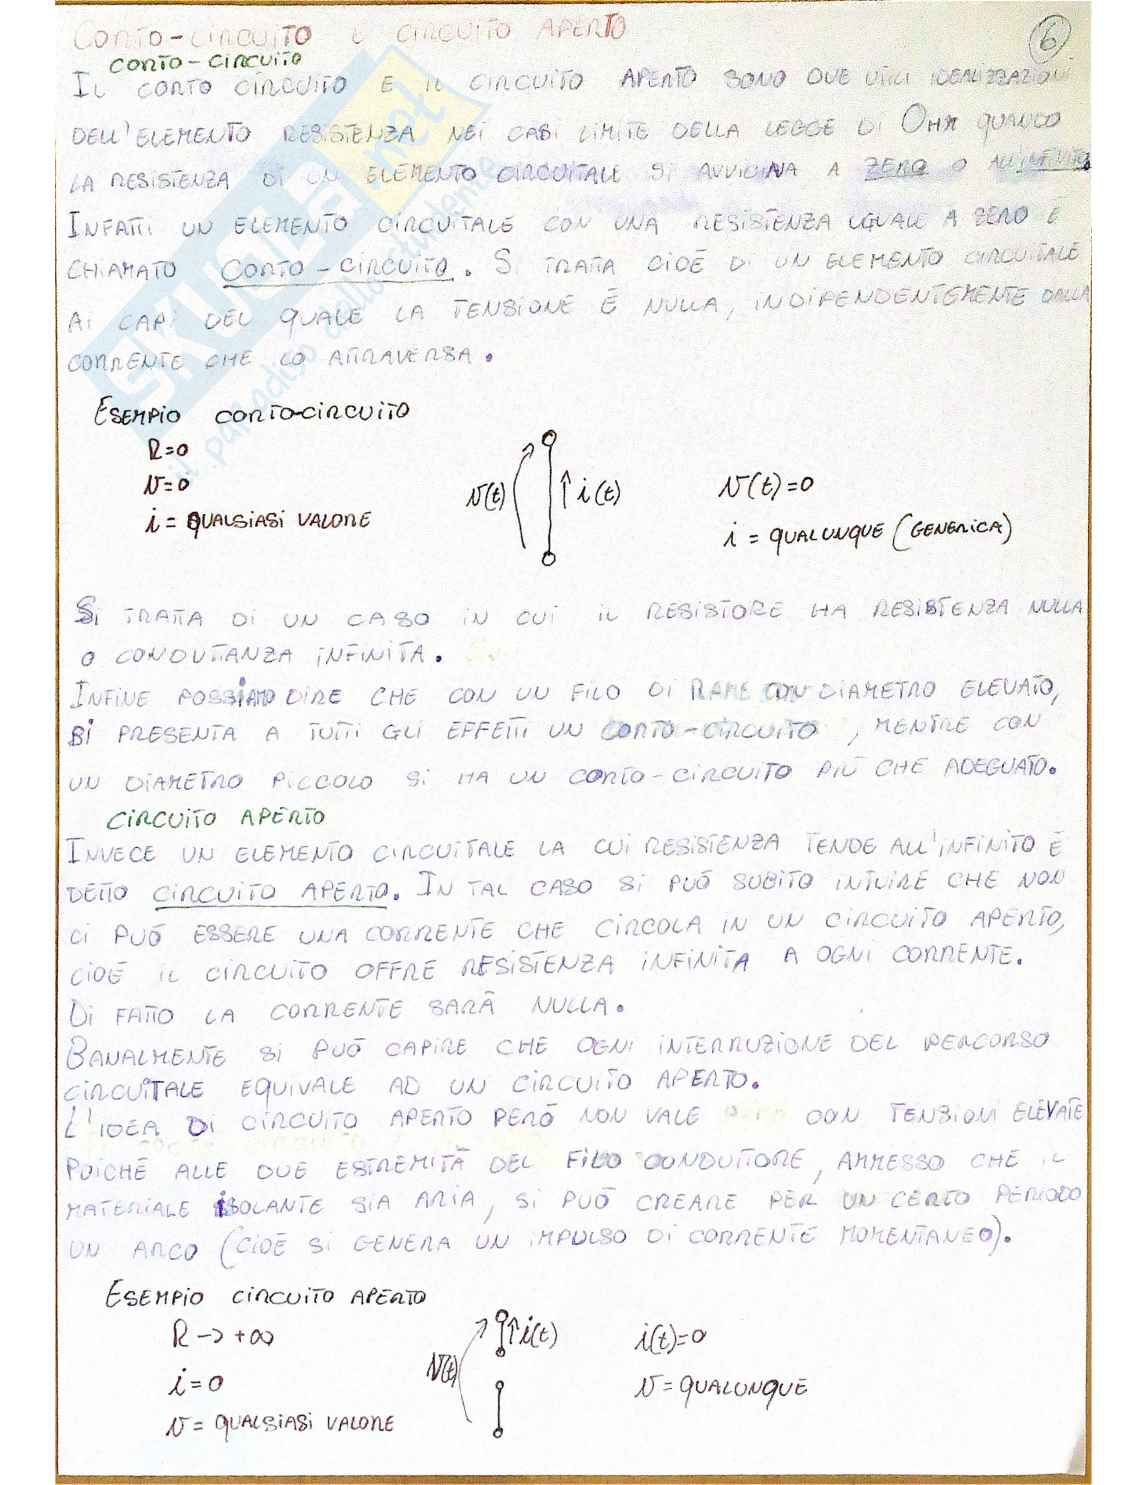 CORTO-CIRCUITO E CIRCUITO APERTO
6
CORTO-CIRCUITO
IL CORTO CIRCUITO E IL CIRCUITO APERTO SONO DUE UTILI IDEALIZZAZIONI
DELL'ELEMENTO RESISTENZA NEI CASI LIMITE DELLA LEGGE DI OHM QUANDO
LA RESISTENZA DI UN ELEMENTO CIRCUITALE SI AVVICINA A ZERO O ALL'INFINITO.
INFATTI UN ELEMENTO CIRCUITALE CON UNA RESISTENZA UGUALE A ZERO È
CHIAMATO CORTO-CIRCUITO. SI TRATTA CIOÈ DI UN ELEMENTO CIRCUITALE
AI CAPI DEL QUALE LA TENSIONE È NULLA, INDIPENDENTEMENTE DALLA
CORRENTE CHE LO ATTRAVERSA.
ESEMPIO CORTO-CIRCUITO
R=0
v=0
i = QUALSIASI VALORE
v(t)
i(t)
v(t)=0
i = QUALUNQUE (GENERICA)
SI TRATTA DI UN CASO IN CUI IL RESISTORE HA RESISTENZA NULLA
O CONDUTTANZA INFINITA.
INFINE POSSIAMO DIRE CHE CON UN FILO DI RAME CON DIAMETRO ELEVATO,
SI PRESENTA A TUTTI GLI EFFETTI UN CORTO-CIRCUITO, MENTRE CON
UN DIAMETRO PICCOLO SI HA UN CORTO-CIRCUITO PIÙ CHE ADEGUATO.
CIRCUITO APERTO
INVECE UN ELEMENTO CIRCUITALE LA CUI RESISTENZA TENDE ALL'INFINITO È
DETTO CIRCUITO APERTO. IN TAL CASO SI PUÒ SUBITO INTUIRE CHE NON
CI PUÒ ESSERE UNA CORRENTE CHE CIRCOLA IN UN CIRCUITO APERTO,
CIOÈ IL CIRCUITO OFFRE RESISTENZA INFINITA A OGNI CORRENTE.
DI FATTO LA CORRENTE SARÀ NULLA.
BANALMENTE SI PUÒ CAPIRE CHE OGNI INTERRUZIONE DEL PERCORSO
CIRCUITALE EQUIVALE AD UN CIRCUITO APERTO.
L'IDEA DI CIRCUITO APERTO PERÒ NON VALE CON TENSIONI ELEVATE
POICHÈ ALLE DUE ESTREMITÀ DEL FILO CONDUTTORE, AMMESSO CHE IL
MATERIALE ISOLANTE SIA ARIA, SI PUÒ CREARE PER UN CERTO PERIODO
UN ARCO (CIOÈ SI GENERA UN IMPULSO DI CORRENTE MOMENTANEO).
ESEMPIO CIRCUITO APERTO
R -> +∞
i=0
v= QUALSIASI VALORE
v(t)
i(t)
i(t)=0
v= QUALUNQUE
SKUOLA.net
il paradiso dello studente